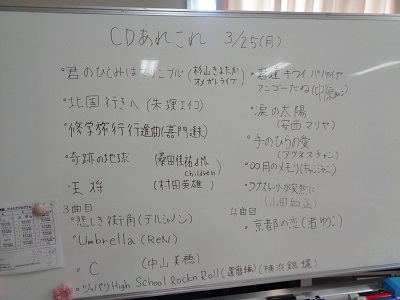 CDあれこれ 3/25(月)
・君のひとみはマリンブルー (杉山きよたか オメガトライブ)
・北国行きへ (朱理エイコ)
・修学旅行行進曲(嘉門達夫)
・奇跡の地球 (桑田佳祐&Mr. Children)
・王将 (村田英雄)
3曲目
・悲しき街角 (デルシャノン)
・Umbrella (ReN)
・C (中山美穂)
・ツッパリHigh School Rock'n Roll (還暦編) (横浜銀蝿)
マンゴーだね(中原
・涙の太陽
(安西マリヤ)
・手のひらの愛
(アグネスチャン)
・00月のメモリー
・ラブストーリーが突然に
(小田和正)
4曲目
・京都の恋(渚ゆう子)